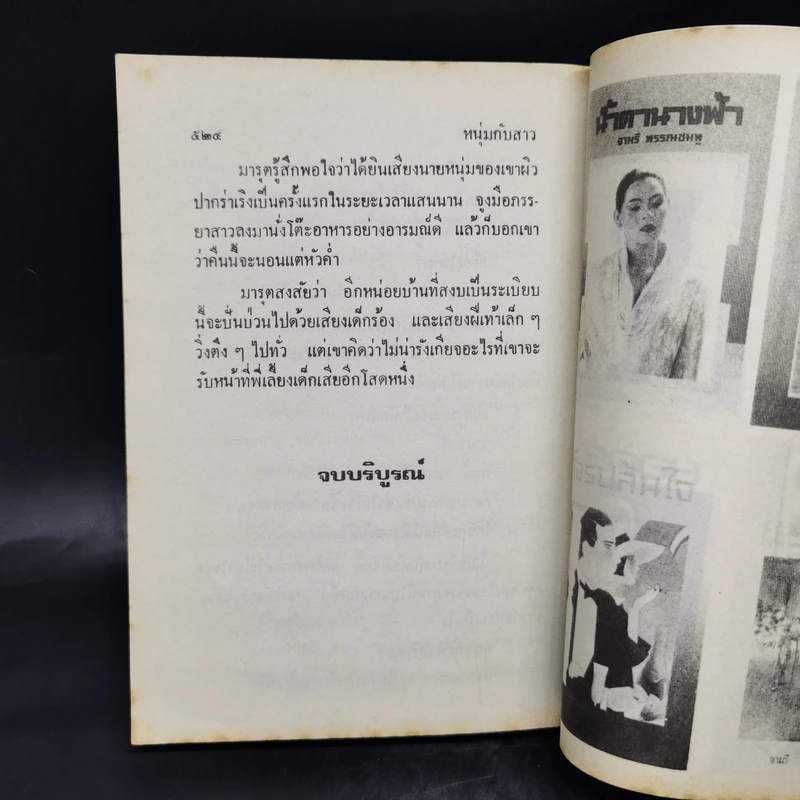 ๕๒๔ หนุ่มกับสาว
มารุตรู้สึกพอใจว่าได้ยินเสียงนายหนุ่มของเขาผิว
ปากร่าเริงเป็นครั้งแรกในระยะเวลาแสนนาน จูงมือภรร-
ยาสาวลงมานั่งโต๊ะอาหารอย่างอารมณ์ดี แล้วก็บอกเขา
ว่าคืนนี้จะนอนแต่หัวค่ำ
มารุตสงสัยว่า อีกหน่อยบ้านที่สงบเป็นระเบียบ
นี้จะปั่นป่วนไปด้วยเสียงเด็กร้อง และเสียงฝีเท้าเล็ก ๆ
วิ่งตึง ๆ ไปทั่ว แต่เขาคิดว่าไม่น่ารังเกียจอะไรที่เขาจะ
รับหน้าที่พี่เลี้ยงเด็กเสียอีกโสดหนึ่ง
จบบริบูรณ์
น้ำตานางฟ้า
จามรี พรรณชมพู
จามรี